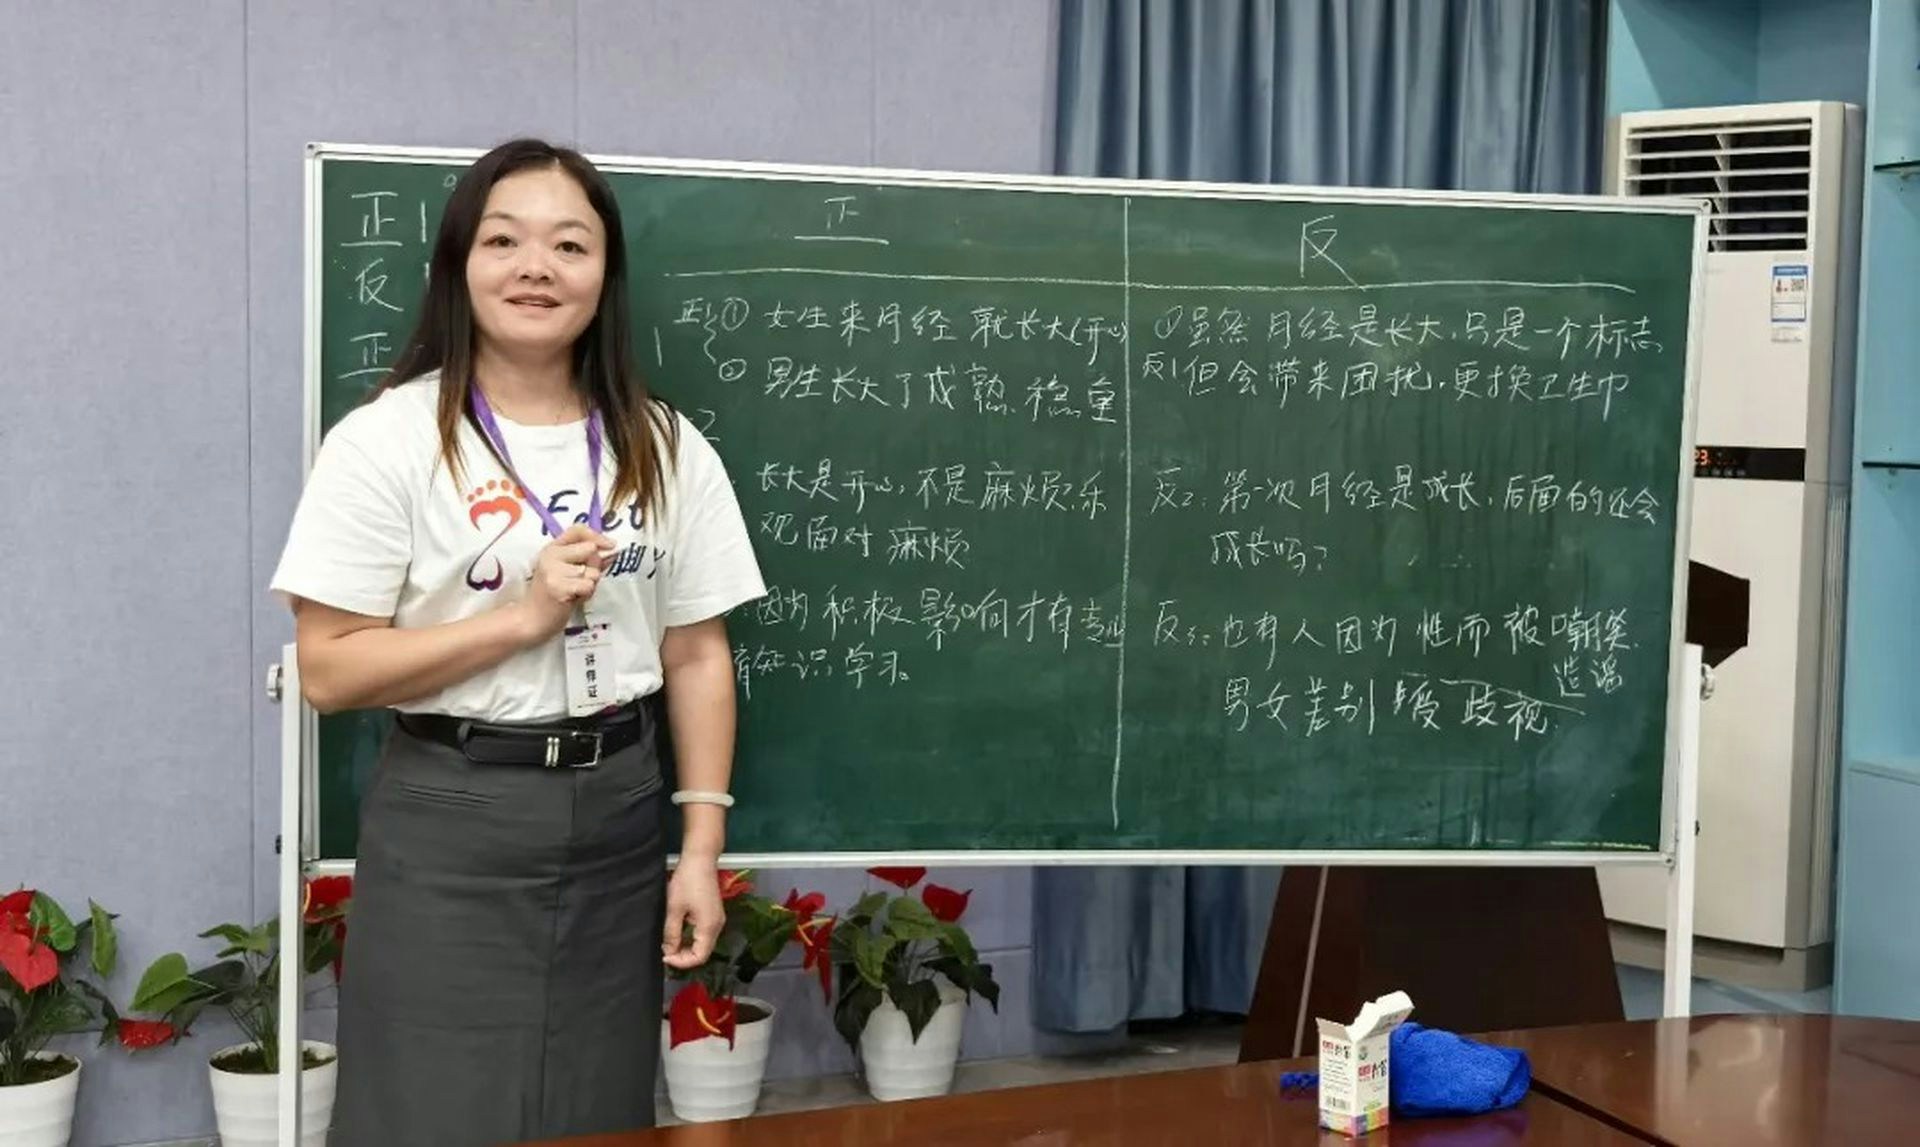 正
反
正
正
反
正1 ① 女生来月经就长大(开心)
② 男生长大了成熟、稳重
2
长大是开心,不是麻烦,乐
观面对麻烦
因为积极影响才有专业
育知识学习。
①虽然月经是长大,只是一个标志,
反1 但会带来困扰,更换卫生巾
反2:第一次月经是成长,后面的还会
成长吗?
反3:也有人因为性而被嘲笑.
造谣
男女差别 受歧视.
Feet
脚丫
讲师证